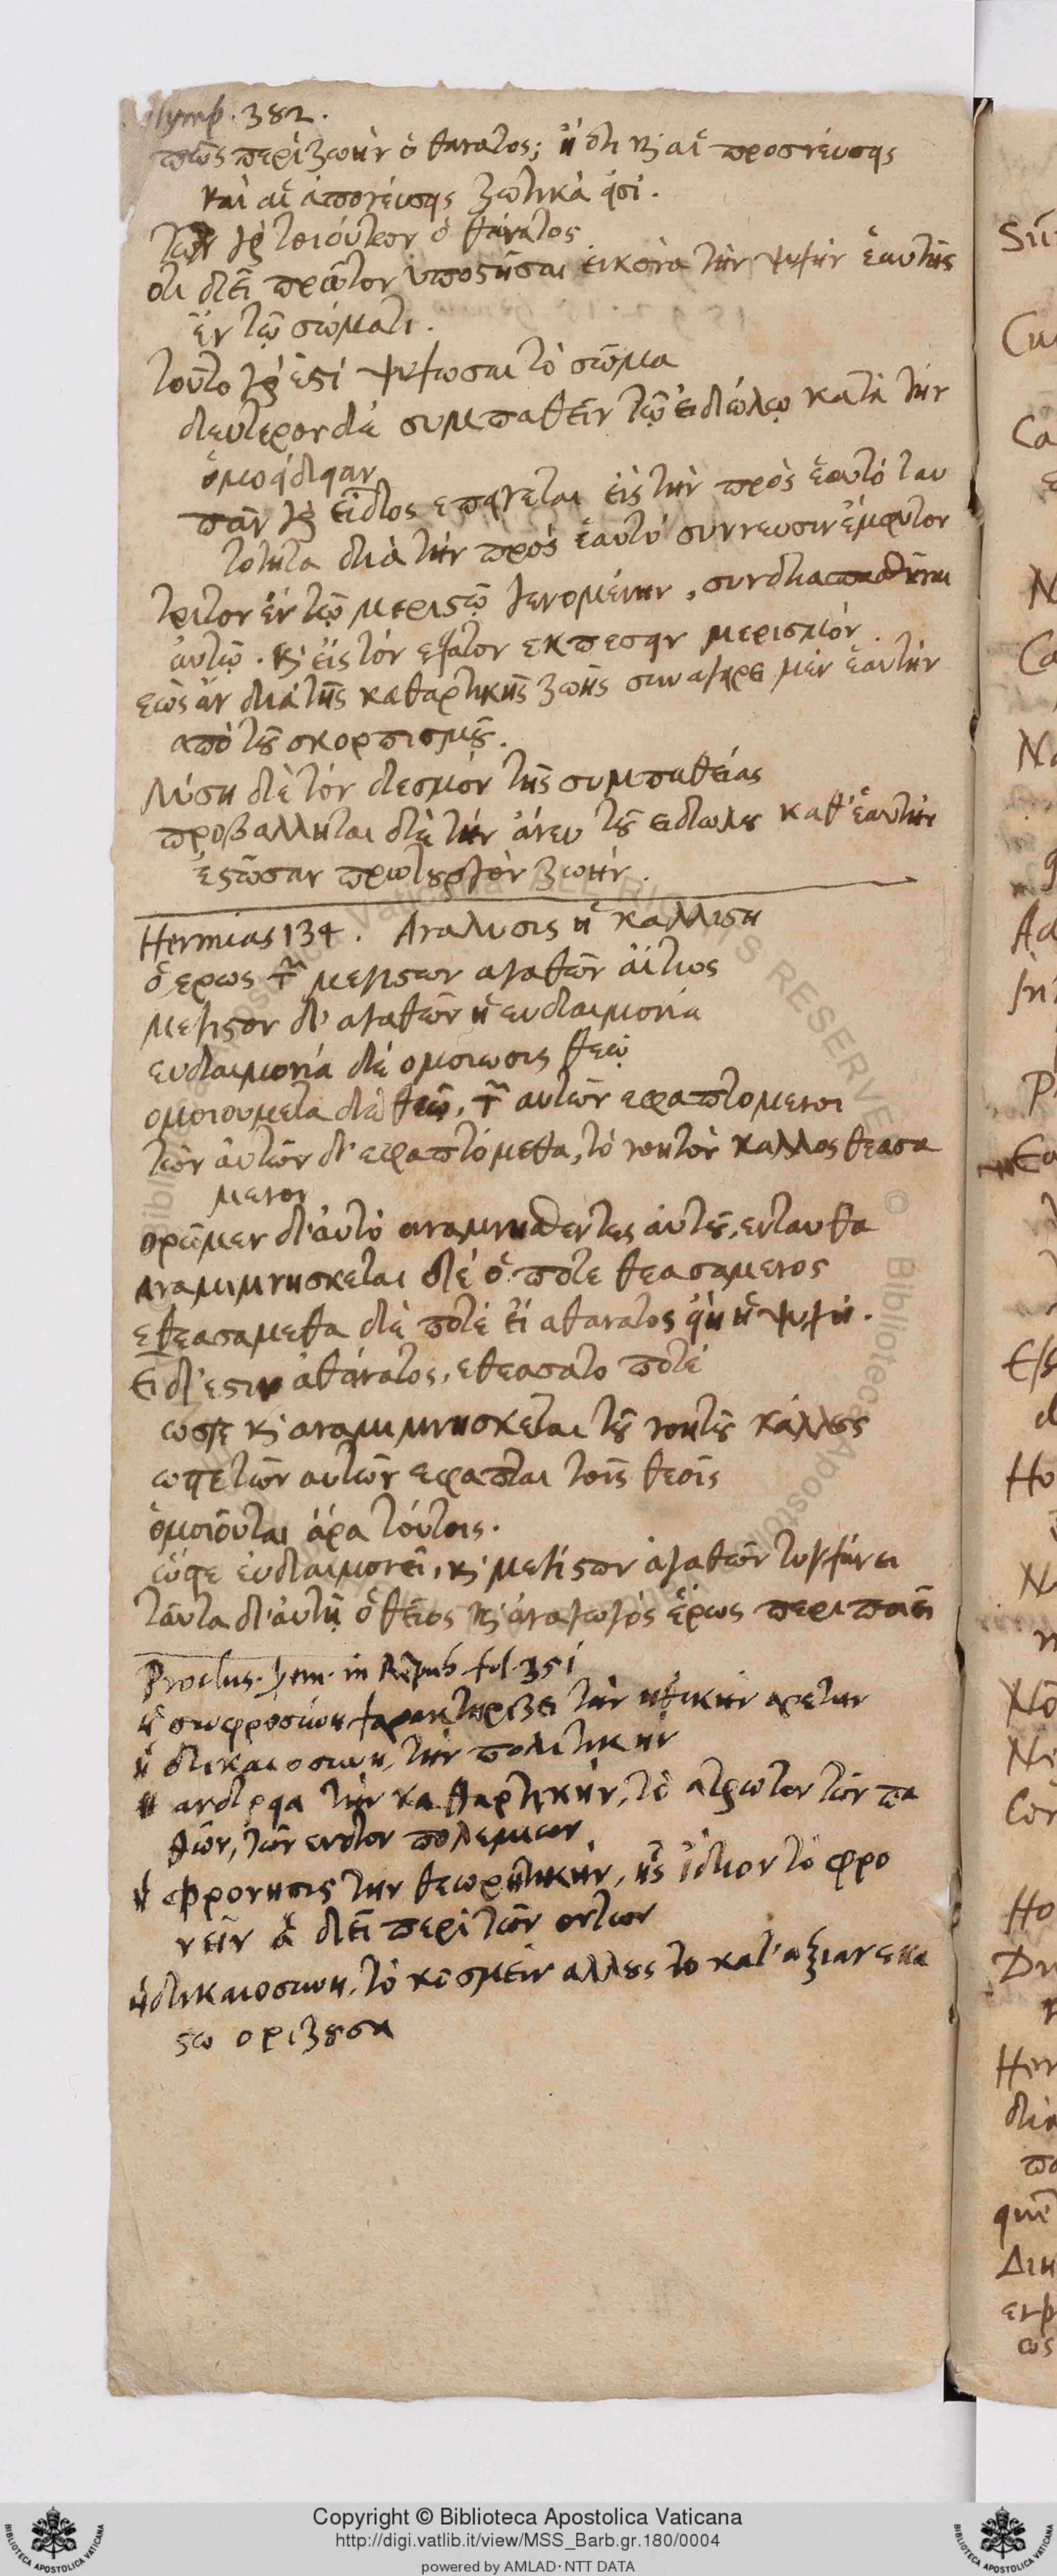 Olymp. 382.
πῶς περὶ ζωὴν ὁ θάνατος; ἢ ὅτι καὶ αἱ προσνεύσεις
καὶ αἱ ἀπονεύσεις ζωτικά εἰσι.
τῶν γὰρ τοιούτων ὁ θάνατος
ὅτι δεῖ πρῶτον ὑποστῆσαι εἰκόνα τὴν ψυχὴν ἑαυτῆς
ἐν τῷ σώματι.
τοῦτο γάρ ἐστι ψυχῶσαι τὸ σῶμα
δεύτερον δὲ συμπαθεῖν τῷ εἰδώλῳ κατὰ τὴν
ὁμοείδειαν
πᾶν γὰρ εἶδος επείγεται εἰς τὴν πρὸς ἑαυτό ταυ
τοτητα διὰ τὴν πρὸς ἑαυτό συννευσιν ἔμφυτον
τριτον ἐν τῷ μεριστῷ γενομένην, συνδιασπασθῆναι
αὐτῷ. καὶ εἰς τόν εσχατον εκπεσειν μερισμόν.
εως ἂν διὰ τῆς καθαρτικῆς ζωῆς συναγειρε μὲν ἑαυτὴν
απὸ τοῦ σκορπισμοῦ.
λύση δὲ τόν δεσμόν τῆς συμπαθείας
προβαλληται δὲ τὴν ἄνευ τοῦ ειδωλου καθ' ἑαυτὴν
ἑστῶσαν πρωτουργὸν ζωήν.
Hermias 134. Αναλυσις ἡ καλλιση
ὁ ερως τῶν μεγιστων αγαθῶν αἴτιος
μεγιστον δ' αγαθῶν ἡ ευδαιμονία
ευδαιμονία δέ ομοιωσις θεῷ
ομοιουμεθα δὲ θεῷ, τῶν αυτῶν εφαπτομενοι
τῶν αὐτῶν δ' εφαπτόμεθα, τό νοητὸν καλλος θεασα
μενοι
ορῶμεν δ' αὐτό αναμνησθεντες αὐτοῦ, ενταυθα
αναμιμνησκεται δέ ὁ ποτε θεασαμενος
εθεασαμεθα δὲ ποτέ εἰ αθανατος εἴη ἡ ψυχή.
Ει δ' εστιν ἀθάνατος, εθεασατο ποτέ
ωστε καὶ αναμιμνησκεται τοῦ νοητοῦ κάλλους
ωστε τῶν αυτῶν εφαπται τοῖς θεοῖς
ὁμοιοῦται ἄρα τούτοις.
ὥστε εὐδαιμονεῖ, καὶ μεγίστων ἀγαθῶν τυγχάνει
ταῦτα δ' αὐτῇ ὁ θεῖος καὶ ἀναγωγός ἔρως περιποιεῖ
Proclus. in Repub. fol. 351
ἡ σωφροσύνη χαρακτηρίζει τὴν ηθικὴν αρετην
ἡ δικαιοσυνη, τὴν πολιτικην
ἡ ανδρεια τὴν καθαρτικὴν, τὸ ατρωτον τῶν πα
θῶν, τῶν ενδον πολεμιων
ἡ φρονησις την θεωρητικὴν, ἧς ἴδιον τὸ φρο
νεῖν ἃ δεῖ περὶ τῶν οντων
ἡ δικαιοσυνη, τὸ κοσμεῖν αλλους το κατ' αξιαν εκα
στω οριζουσα
Copyright © Biblioteca Apostolica Vaticana
http://digi.vatlib.it/view/MSS_Barb.gr.180/0004
powered by AMLAD·NTT DATA